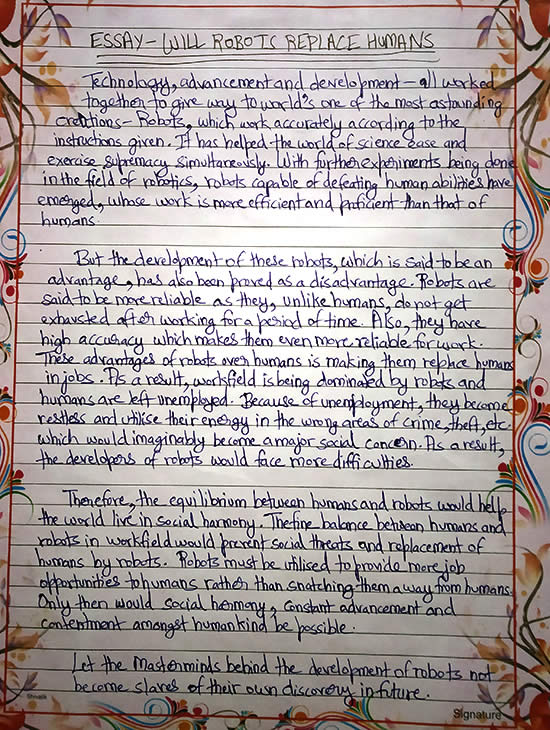 ESSAY - WILL ROBOTS REPLACE HUMANS
Technology, advancement and development - all worked
together to give way to world's one of the most astounding
creations - Robots, which work accurately according to the
instructions given. It has helped the world of science ease and
exercise supremacy simultaneously. With further experiments being done
in the field of robotics, robots capable of defeating human abilities have
emerged, whose work is more efficient and proficient than that of
humans.
But the development of these robots, which is said to be an
advantage, has also been proved as a disadvantage. Robots are
said to be more reliable as they, unlike humans, do not get
exhausted after working for a period of time. Also, they have
high accuracy which makes them even more reliable for work.
These advantages of robots over humans is making them replace humans
in jobs. As a result, workfield is being dominated by robots and
humans are left unemployed. Because of unemployment, they become
restless and utilise their energy in the wrong areas of crime, theft, etc.
which would imaginably become a major social concern. As a result,
the developers of robots would face more difficulties.
Therefore, the equilibrium between humans and robots would help
the world live in social harmony. The fine balance between humans and
robots in workfield would prevent social threats and replacement of
humans by robots. Robots must be utilised to provide more job
opportunities to humans rather than snatching them away from humans.
Only then would social harmony, constant advancement and
contentment amongst humankind be possible.
Let the masterminds behind the development of robots not
become slaves of their own discovery in future.
Shivalik
Signature